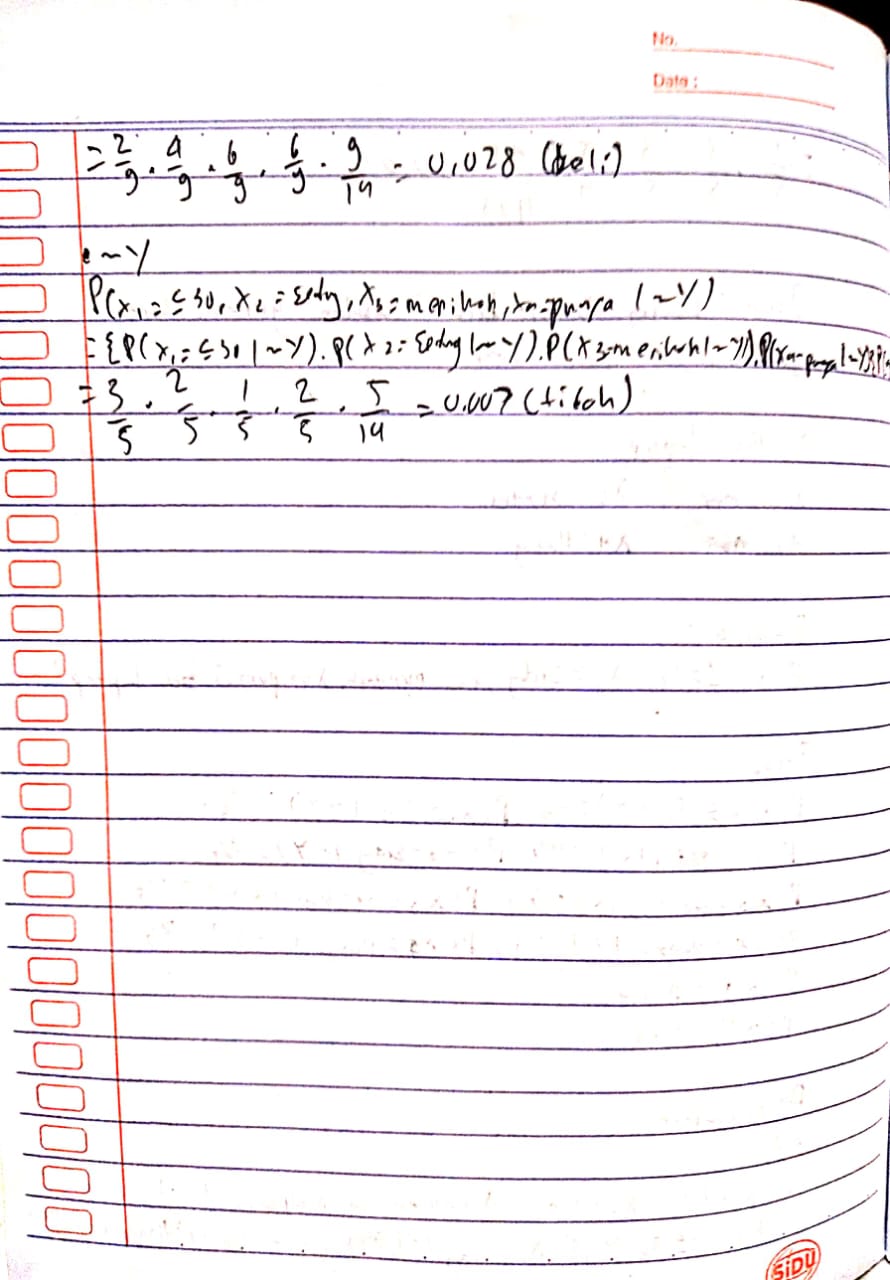 No.
Date :
= 2/9 . 4/9 . 6/9 . 6/9 . 9/14 = 0,028 (beli)
• ~Y
P(x₁ = ≤ 30, x₂ = , x₃ = menikah, x₄ = punya | ~Y)
= {P(x₁ = ≤ 30 | ~Y) . P(x₂ = | ~Y) . P(x₃ = menikah | ~Y) . P(x₄ = punya | ~Y)} . P(
= 3/5 . 2/5 . 1/5 . 2/5 . 5/14 = 0.007 (tidak)
SiDU